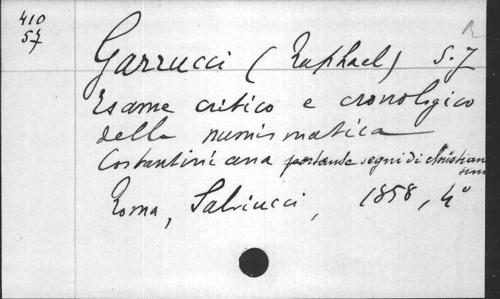 410
57
Garrucci (Raphael) S.J
Esame critico e cronologico
della numismatica
Costantiniana portante segni di christian
Roma, Salviucci, 1858, 4°